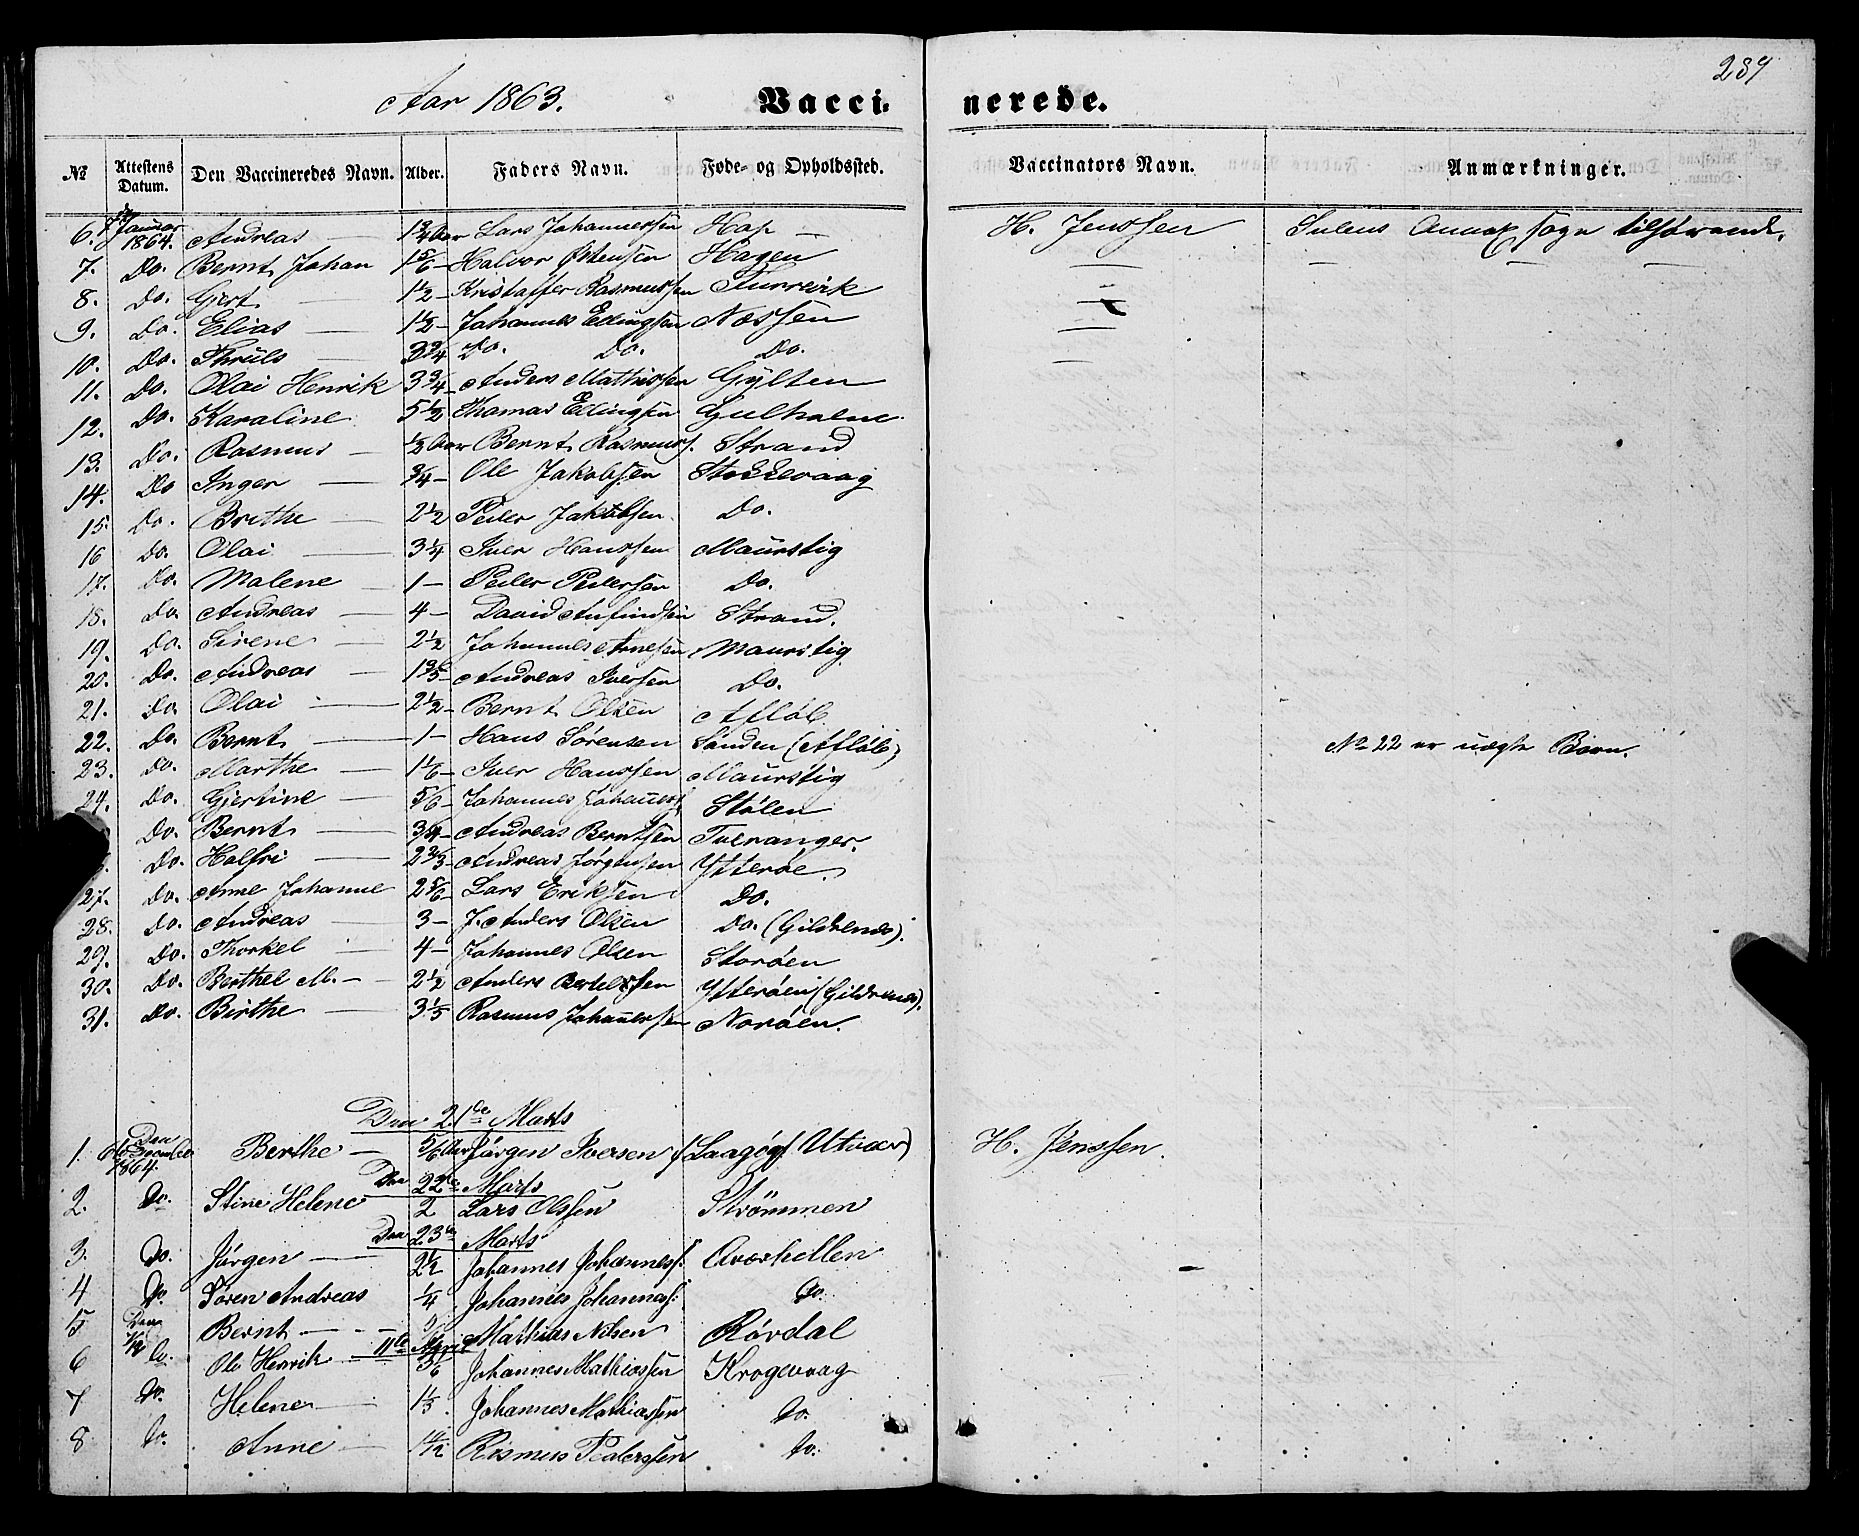 289
Aar 1863. Vaccinerede.
No Attestens Datum. Den Vaccineredes Navn. Alder. Faders Navn. Føde- og Opholdssted. Vaccinators Navn. Anmærkninger.
6. Januar 1864. Andreas — 1 3/4 Aar Lars Johannessen Hop — H. Jenssen Sulens Annex sogn tilhørende.
7. Do. Bernt Johan 1 5/6 – Halvor Hagen
8. Do. Gjert — 1 1/2 – Kristoffer Rasmussen
9. Do. Elias — 1 1/2 – Johannes Ellingsen Nossen
10. Do. Thrüls — 3/4 Do. Do. Do.
11. Do. Olai Henrik 3 3/4 – Anders Mathiessen Gylten
12. Do. Karaline 5 1/2 Thomas Ellingsen Gulholme
13. Do. Rasmus — 1/2 Aar Bernt Rasmuss. Strand
14. Do Inger — 3/4 – Ole Jakobsen Stokkevaag
15. Do. Brithe — 2 1/2 Peder Jakobsen Do.
16 Do. Olai — 3 1/4 Iver Hanssen Maurstig
17. Do. Malene — 1 – Peder Pedersen Do.
18. Do. Andreas — 4 – David Anfindsen Strand.
19. Do. Sirene — 2 1/2 Johannes Arnesen Maurstig
20. Do. Andreas — 1 3/5 – Andreas Iversen Do.
21. Do. Olai — 2 1/2 – Bernt Olsen Afløb
22. Do. Bernt — 1 – Hans Sørensen Sanden (Afløb) No 22 er uægte Barn.
23. Do. Marthe — 1 1/6 – Iver Hanssen Maurstig
24. Do. Gjertine — 5/6 – Johannes Johanness. Stølen
Do. Bernt — 3/4 – Andreas Berntsen Tveranger.
Do. Halfri — 2 2/3 – Andreas Jørgensen Ytterøe.
27. Do. Anne Johanne 2 5/6 – Lars Eriksen Do.
28. Do. Andreas — 3 – J. Anders Olsen Do. (Gildrenes).
29. Do. Thorkel — 4 – Johannes Olsen Storøen
30. Do. Berthel M. – 2 1/2 – Anders Bertelssen Ytterøen (Gildrenes).
31. Do. Birthe — 3 1/5 Rasmus Johannessen Norøen.
Den 21de Marts
1. Den Decembe 1864. Berthe — 5/6 Aar Jørgen Iversen Laagøy (Utvær) H. Jenssen.
Den 22de Marts
2. Do. Stine Helene 2 Lars Olssen Strømmen
Den 23de Marts
3. Do. Jørgen — 2 1/2 Johannes Johanness. Avørhellen
4 Do. Søren Andreas 1/4 Johannes Johanness: Do.
5 Den Bernt — Mathias Nilsen Rørdal
11te April
6 Do. Ole Henrik — 3/6 Johannes Mathiassen Krogevaag
7 Do. Helene — 1 1/3 Johannes Mathiassen Do.
8 Do. Anne — Rasmus Pederssen Do.